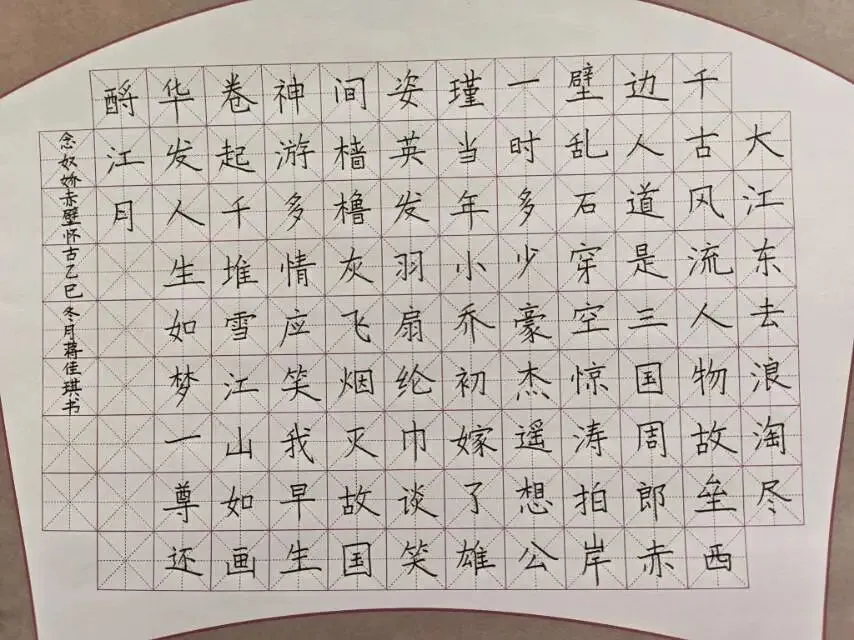 大江东去浪淘尽
千古风流人物故垒西
边人道是三国周郎赤
壁乱石穿空惊涛拍岸
一时多少豪杰遥想公
瑾当年小乔初嫁了雄
姿英发羽扇纶巾谈笑
间樯橹灰飞烟灭故国
神游多情应笑我早生
卷起千堆雪江山如画
华发人生如梦一尊还
酹江月
念奴娇赤壁怀古乙巳冬月蒋佳琪书